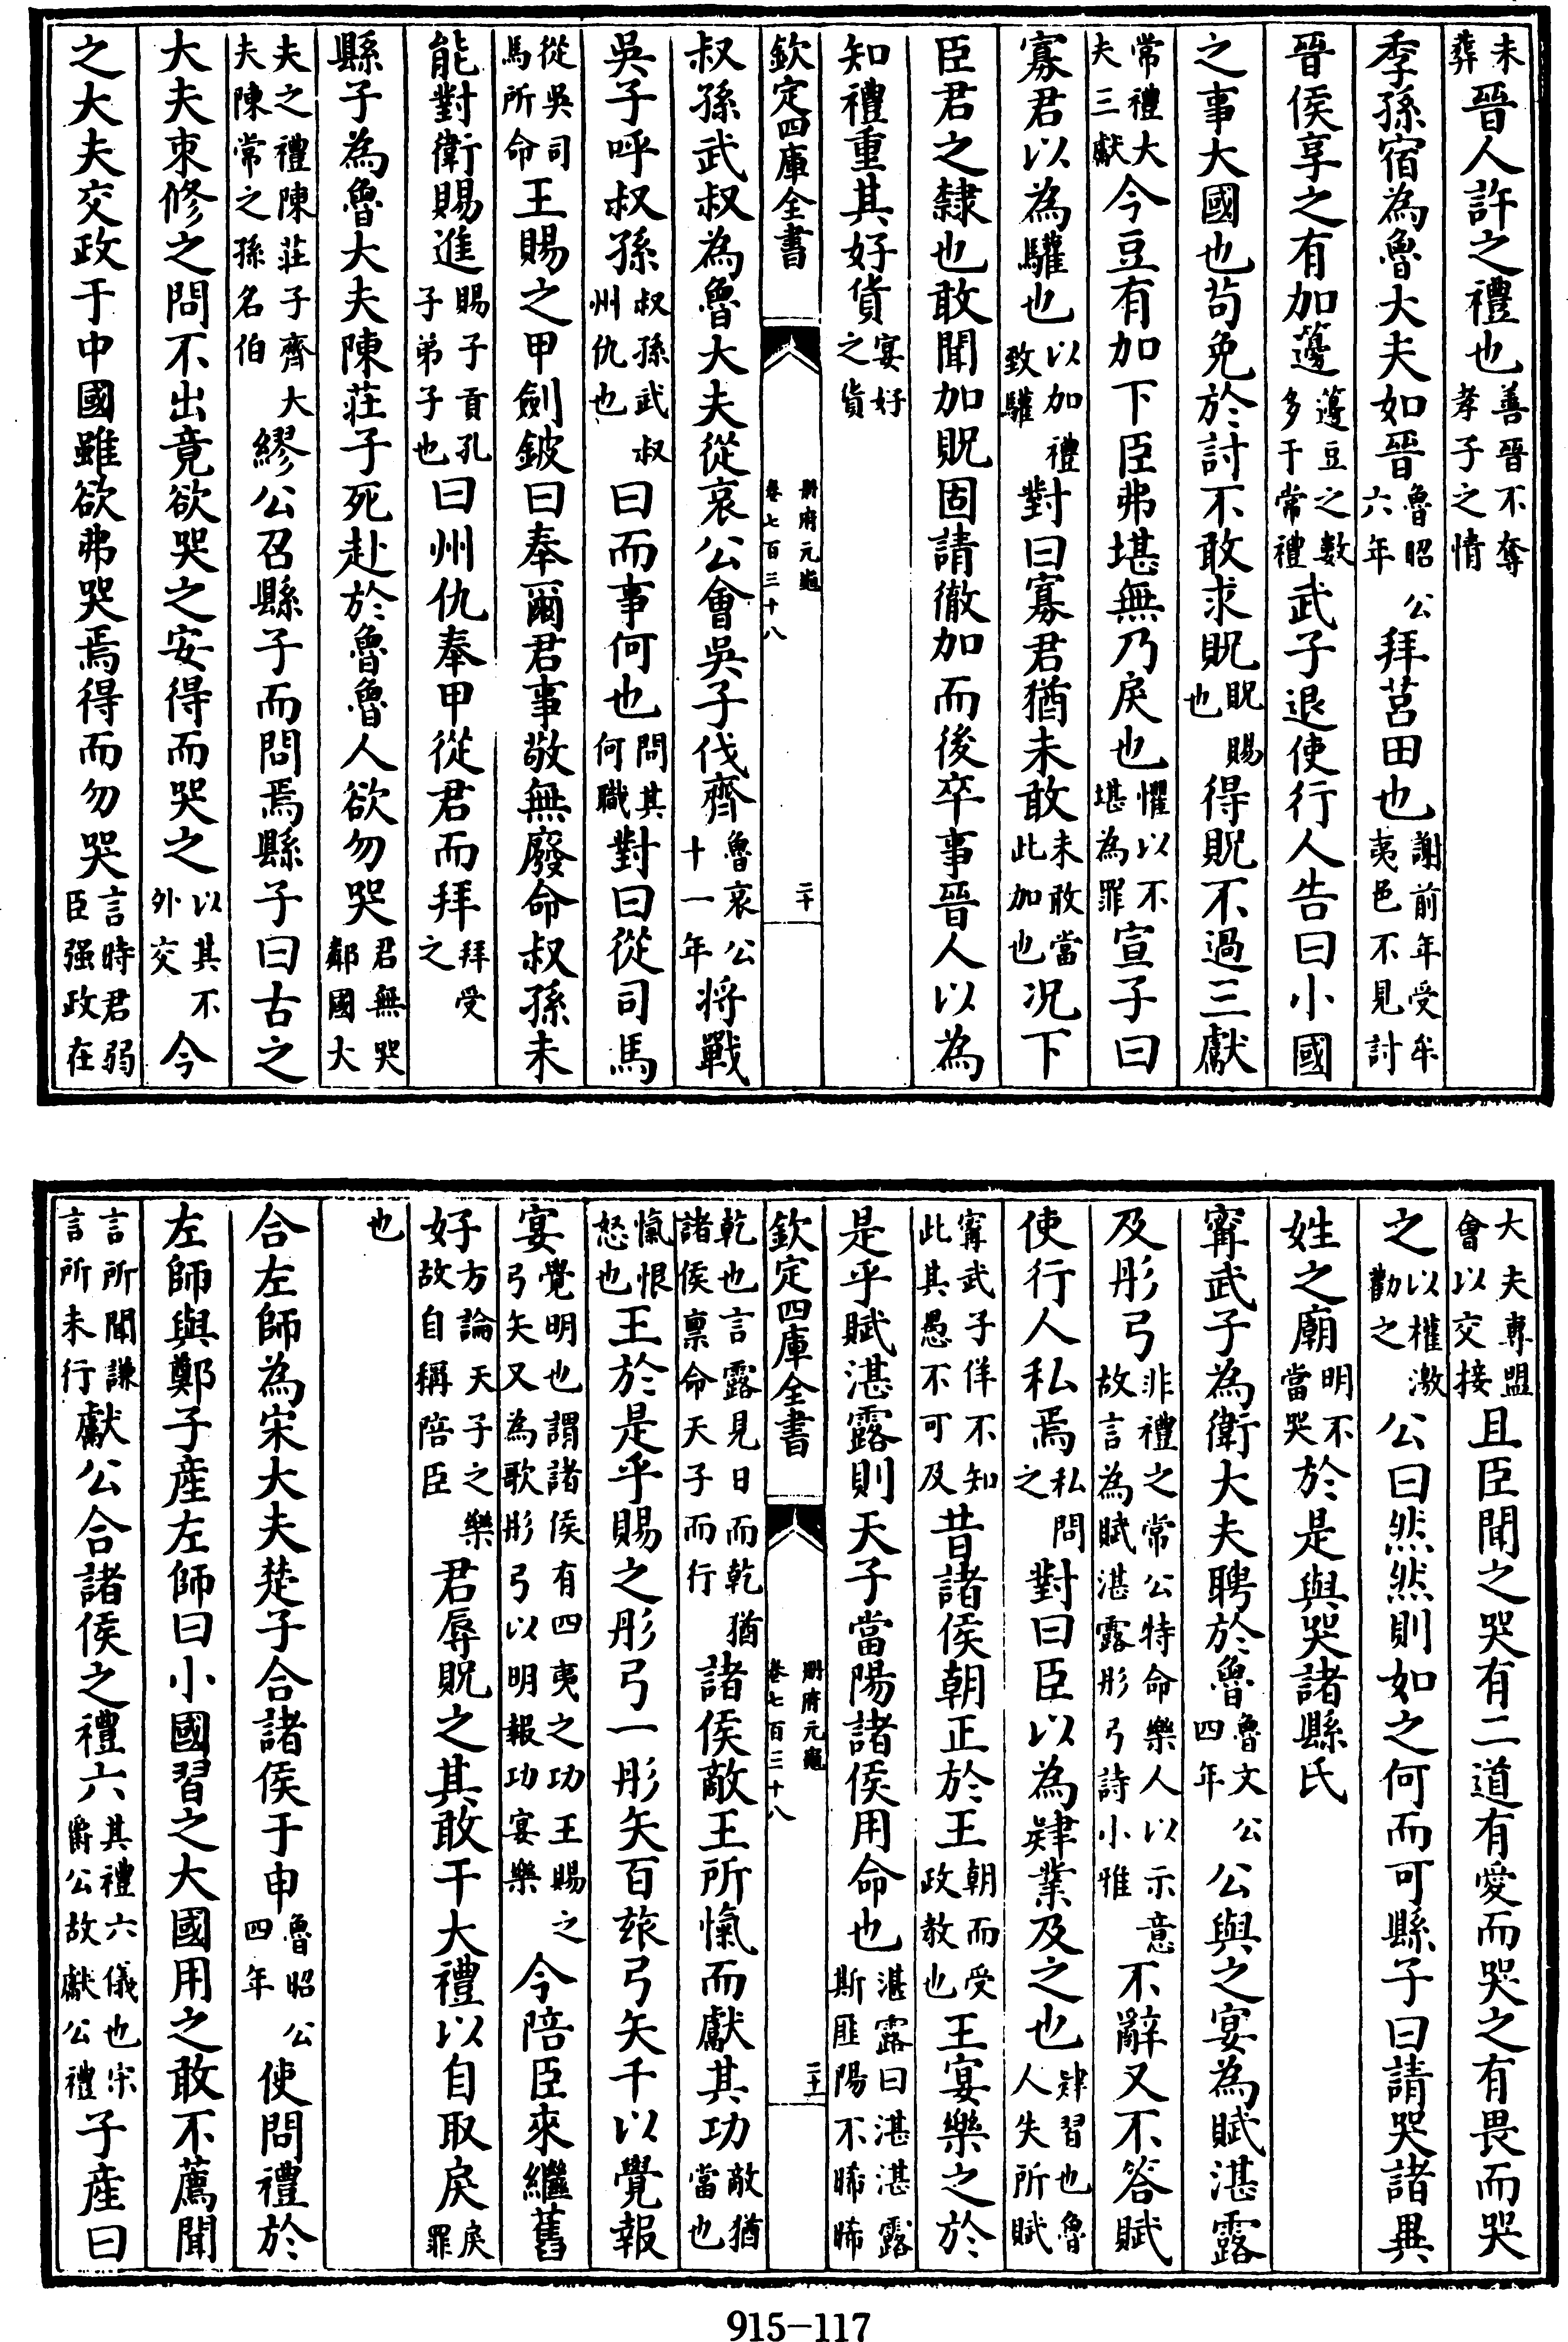 未葬晉人許之禮也善晉不奪孝子之情
季孫宿為魯大夫如晉魯昭公六年拜莒田也謝前年受牟夷邑不見討
晉侯享之有加籩籩豆之數多于常禮武子退使行人告曰小國
之事大國也苟免於討不敢求貺貺賜也得貺不過三獻
常禮大夫三獻今豆有加下臣弗堪無乃戾也懼以不堪為罪宣子曰
寡君以為驩也以加禮致驩對曰寡君猶未敢未敢當此加也况下
臣君之隸也敢聞加貺固請徹加而後卒事晉人以為
知禮重其好貨宴好之貨
欽定四庫全書 冊府元龜卷七百三十八 二十
叔孫武叔為魯大夫從哀公會吳子伐齊魯哀公十一年將戰
吳子呼叔孫叔孫武叔州仇也曰而事何也問其何職對曰從司馬
從吳司馬所命王賜之甲劍鈹曰奉爾君事敬無廢命叔孫未
能對衛賜進賜子貢孔子弟子也曰州仇奉甲從君而拜拜受之
縣子為魯大夫陳莊子死赴於魯魯人欲勿哭君無哭鄰國大
夫之禮陳莊子齊大夫陳常之孫名伯繆公召縣子而問焉縣子曰古之
大夫束修之問不出竟欲哭之安得而哭之以其不外交今
之大夫交政于中國雖欲弗哭焉得而勿哭言時君弱臣强政在
大夫專盟會以交接且臣聞之哭有二道有愛而哭之有畏而哭
之以權激勸之公曰然然則如之何而可縣子曰請哭諸異
姓之廟明不當哭於是與哭諸縣氏
甯武子為衛大夫聘於魯魯文公四年公與之宴為賦湛露
及彤弓非禮之常公特命樂人以示意故言為賦湛露彤弓詩小雅不辭又不答賦
使行人私焉私問之對曰臣以為肄業及之也肄習也魯人失所賦
甯武子佯不知此其愚不可及昔諸侯朝正於王朝而受政教也王宴樂之於
是乎賦湛露則天子當陽諸侯用命也湛露曰湛湛露斯匪陽不晞晞
乾也言露見日而乾猶諸侯禀命天子而行諸侯敵王所愾而獻其功敵猶當也
欽定四庫全書 冊府元龜卷七百三十八 二十一
愾恨怒也王於是乎賜之彤弓一彤矢百玈弓矢千以覺報
宴覺明也謂諸侯有四夷之功王賜之弓矢又為歌彤弓以明報功宴樂今陪臣來繼舊
好方論天子之樂故自稱陪臣君辱貺之其敢干大禮以自取戾戾罪
也
合左師為宋大夫楚子合諸侯于申魯昭公四年使問禮於
左師與鄭子産左師曰小國習之大國用之敢不薦聞
言所聞謙言所未行獻公合諸侯之禮六其禮六儀也宋爵公故獻公禮子産曰
915-117